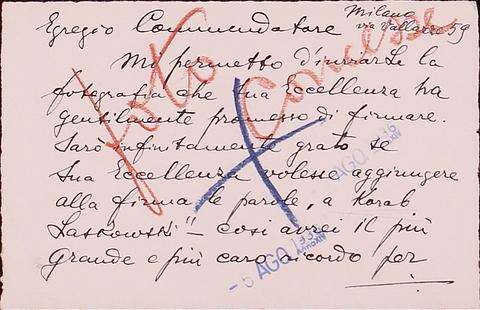 Milano
via Vallazze 59
Egregio Commendatore
Mi permetto d'inviarLe la
fotografia che Sua Eccellenza ha
gentilmente promesso di firmare.
Sarò infinitamente grato se
Sua Eccellenza volesse aggiungere
alla firma le parole, a Korab
Laskowski" – così avrei il più
grande e più caro ricordo per
foto Concessa
AGO 1936
-5 AGO 1936